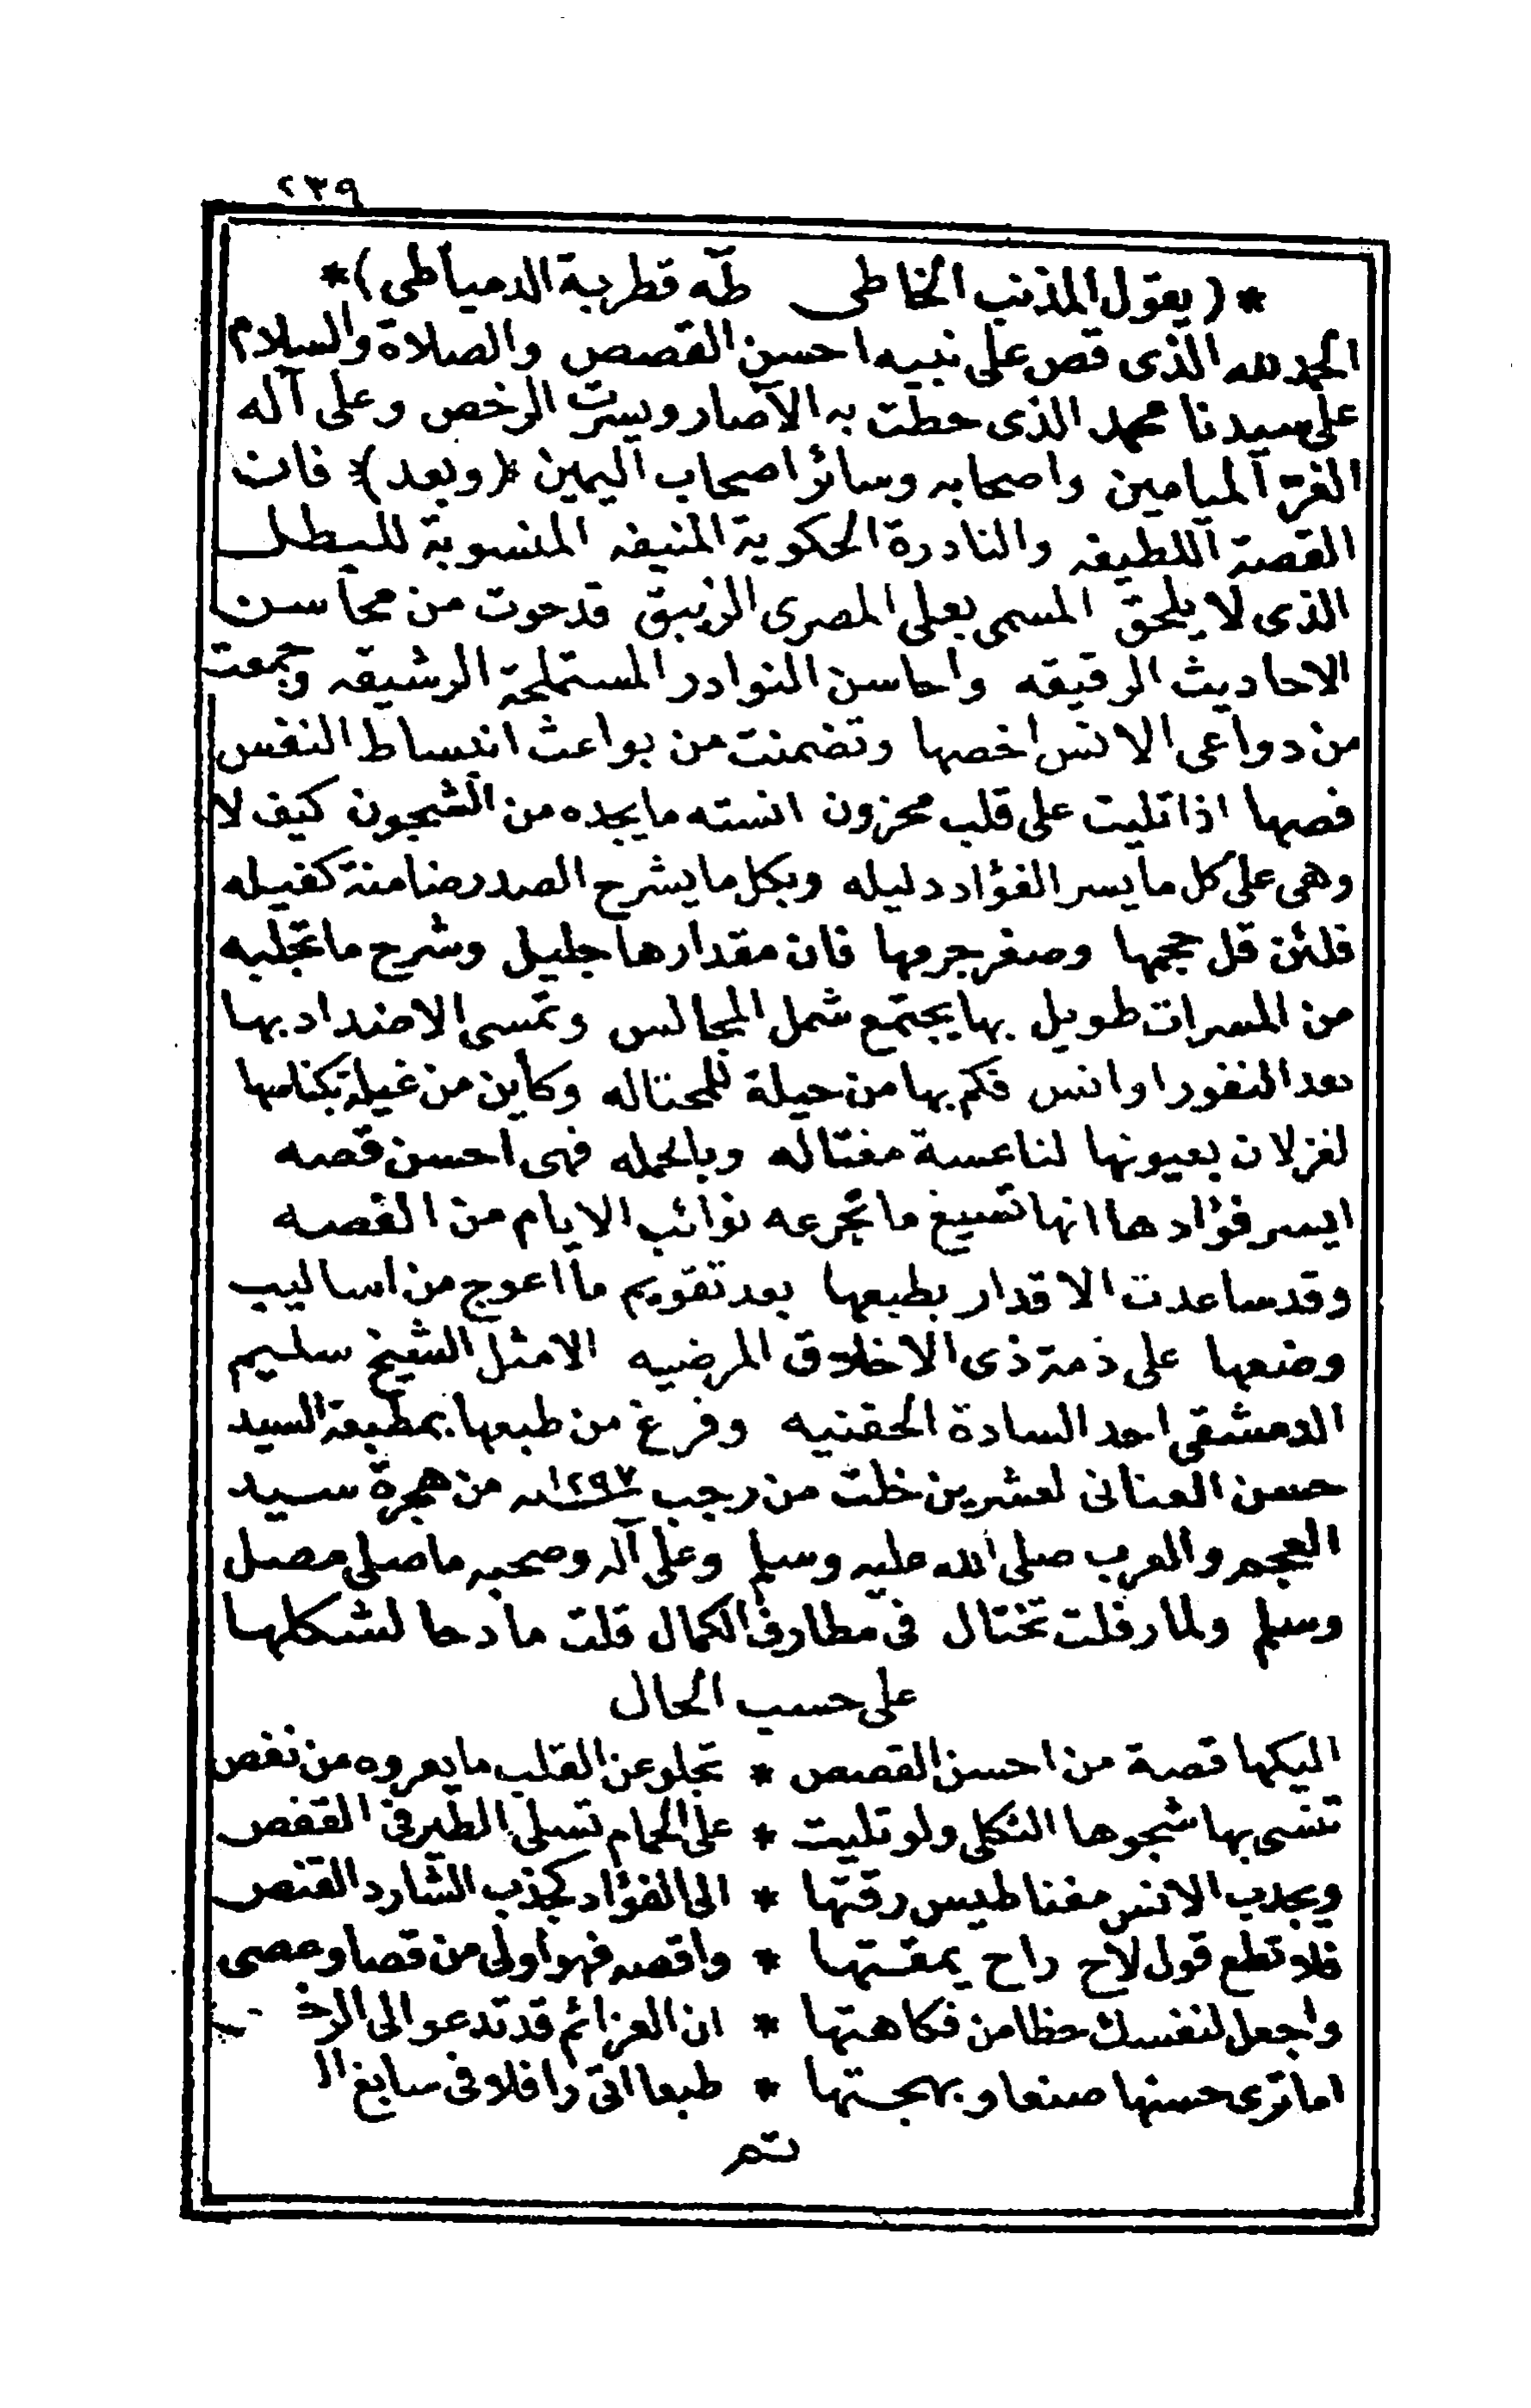 ٢٣٩
*(يقول المذنب الخاطى طه قطرية الدمياطى)*
الحمد لله الذى قص على نبيه احسن القصص والصلاة والسلام
على سيدنا محمد الذى حطت به الآصار ويسرت الرخص وعلى آله
الغر الميامين واصحابه وسائر اصحاب اليمين *(وبعد)* فان
القصة اللطيفه والنادرة الحكوية المنيفه المنسوبة للبطل
الذى لا يلحق المسمى بعلى المصرى الزيبق قد حوت من محاسن
الاحاديث الرقيقه واحاسن النوادر المستملحة الرشيقه وجمعت
من دواعى الانس اخصها وتضمنت من بواعث انبساط النفس
فصها اذا تليت على قلب محزون انسته ما يجده من الشجون كيف لا
وهى على كل ما يسر الفؤاد دليله وبكل ما يشرح الصدر ضامنة كفيله
فلئن قل حجمها وصغر جرمها فان مقدارها جليل وشرح ما تجلبه
من المسرات طويل بها يجتمع شمل المجالس وتمسى الاضداد بها
بعد النفور اوانس فكم بها من حيلة للمحتاله وكأين من غيلة بكناسها
لغزلان بعيونها لناعسة مغتاله وبالجمله فهى احسن قصه
ايسر فؤادها انها تسيغ ما تجرعه نوائب الايام من الغصه
وقد ساعدت الاقدار بطبعها بعد تقويم ما اعوج من اساليب
وضعها على ذمة ذى الاخلاق المرضيه الامثل الشيخ سليم
الدمشقى احد السادة الحفنيه وفرغ من طبعها بمطبعة السيد
حسن العنانى لعشرين خلت من رجب سنة ١٢٩٧ من هجرة سيد
العجم والعرب صلى الله عليه وسلم وعلى آله وصحبه ما صلى مصل
وسلم ولما رفلت تختال فى مطارف الكمال قلت مادحا لشكلها
على حسب الحال
اليكها قصة من احسن القصص * تجلو عن القلب ما يعروه من نغص
تنسى بها شجوها الثكلى ولو تليت * على الحمام تسلى الطير فى القفص
ويجذب الانس مغناطيس رقتها * الى الفؤاد كجذب الشارد القنص
فلا تطع قول لاح راح يمقتها * واقصه فهو اولى من قصا وعصى
واجعل لنفسك حظا من فكاهتها * ان العزائم قد تدعو الى
اما ترى حسنها صنعا وبهجتها * طبعا اتى رافلا فى سابغ
تم